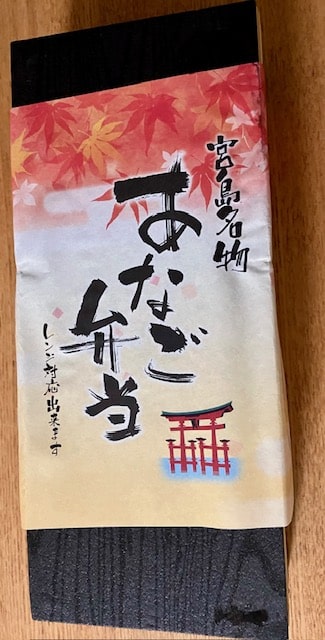 宮島名物
あなご
弁当
レンジ対応出来ます